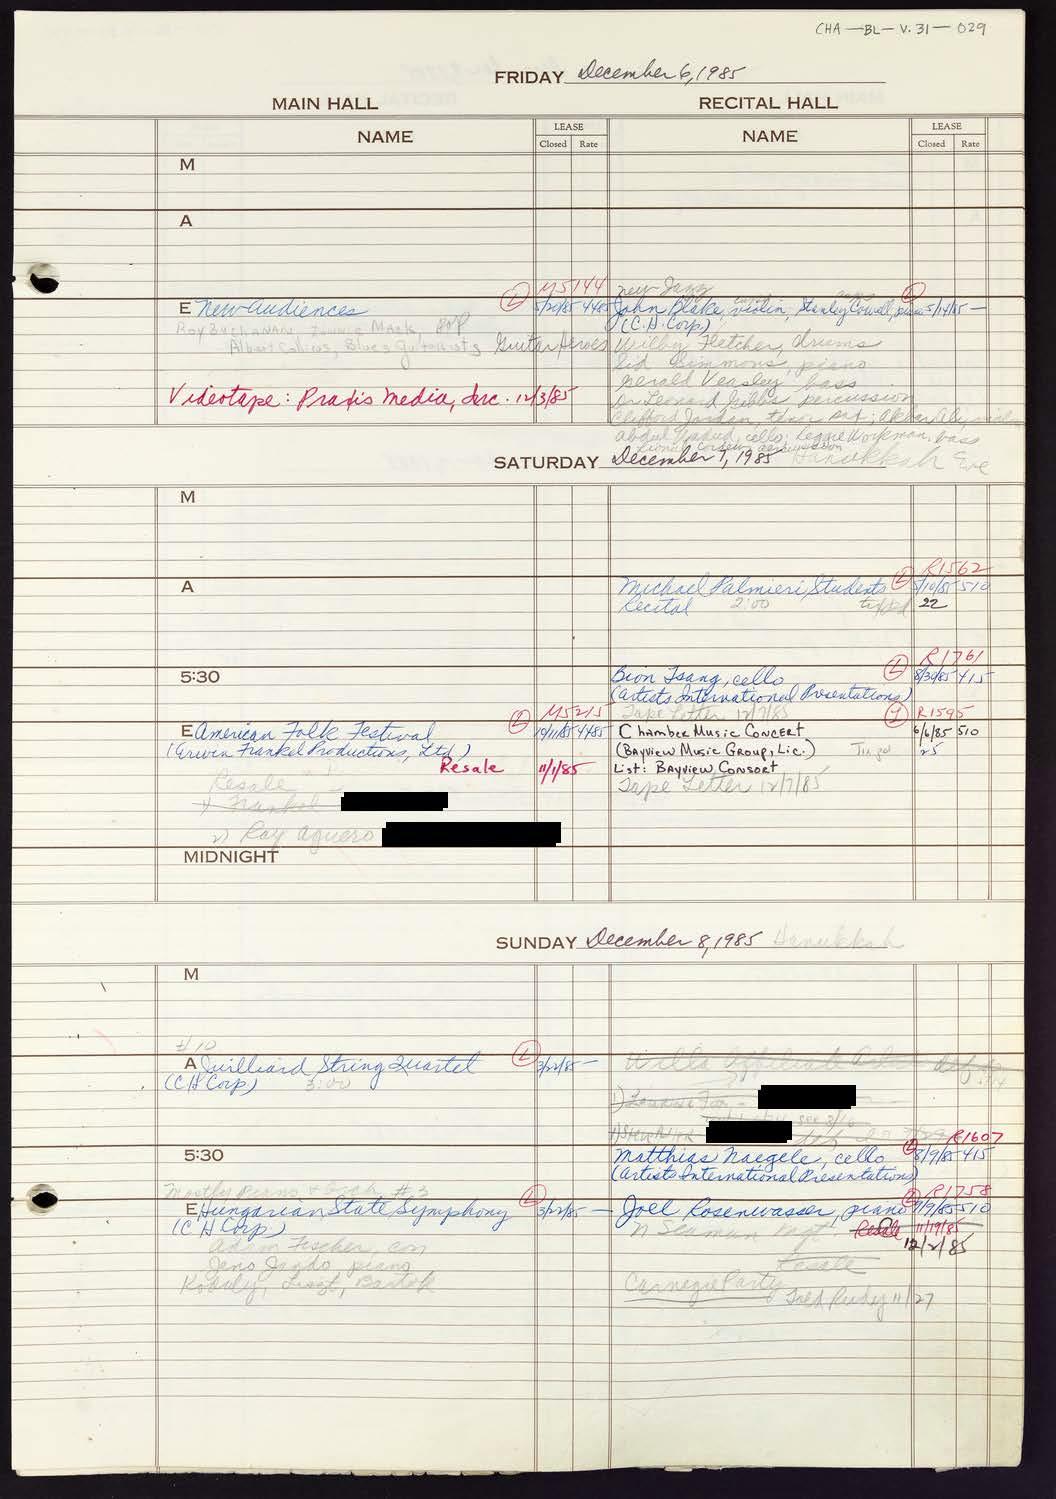 CHA-BL-V.31-029
FRIDAY December 6, 1985
MAIN HALL RECITAL HALL
NAME LEASE Closed Rate NAME LEASE Closed Rate
M
A
M5144 new Jazz
E New Audiences L 4485 John Blake, violin, Stanley Cowell, piano 5/14/85 —
Roy Buchanan, Lonnie Mack, (C.H. Corp)
Albert Collins, Blues Guitarists Guitar Heroes Wilby Fletcher, drums
Sid Simmons, piano
Gerald Veasley bass
Videotape: Praxis Media, Inc. 12/3/85 Dr Leonard Gibbs percussion
Clifford Jordan, tenor sax; Akbar Ali, violin
Abdul Wadud, cello; Reggie Workman, bass
percussion
SATURDAY December 7, 1985 Hanukkah Eve
M
R1562
A Michael Palmieri, Students 5/10/85 510
Recital 2:00 22
R1761
5:30 Bion Tsang, cello L 8/30/85 415
(Artists International Presentations)
M5215 Tape Letter 12/7/85 R1595
E American Folk Festival L 10/11/85 4485 Chamber Music Concert 6/6/85 510
(Erwin Frankel Productions, Ltd.) (Bayview Music Group, Lic.) 25
Resale 11/1/85 List: Bayview Consort
Resale Tape Letter 12/7/85
1) Frankel
2) Ray Aguero
MIDNIGHT
SUNDAY December 8, 1985 Hanukkah
M
#10
A Juilliard String Quartet L 3/22/85 —
(C H Corp) 3:00
R1607
5:30 Matthias Naegele, cello 8/9/85 415
(Artists International Presentations)
Mostly Piano & Orch #3 R1758
E Hungarian State Symphony L 3/22/85 — Joel Rosenwasser, piano 9/9/85 510
(C H Corp.) N Seaman Resale 11/19/85
Adam Fischer, con 12/2/85
Jeno Jando, piano Resale
Kodaly, Liszt, Bartok Carnegie Party
Fred Rudy 11/27